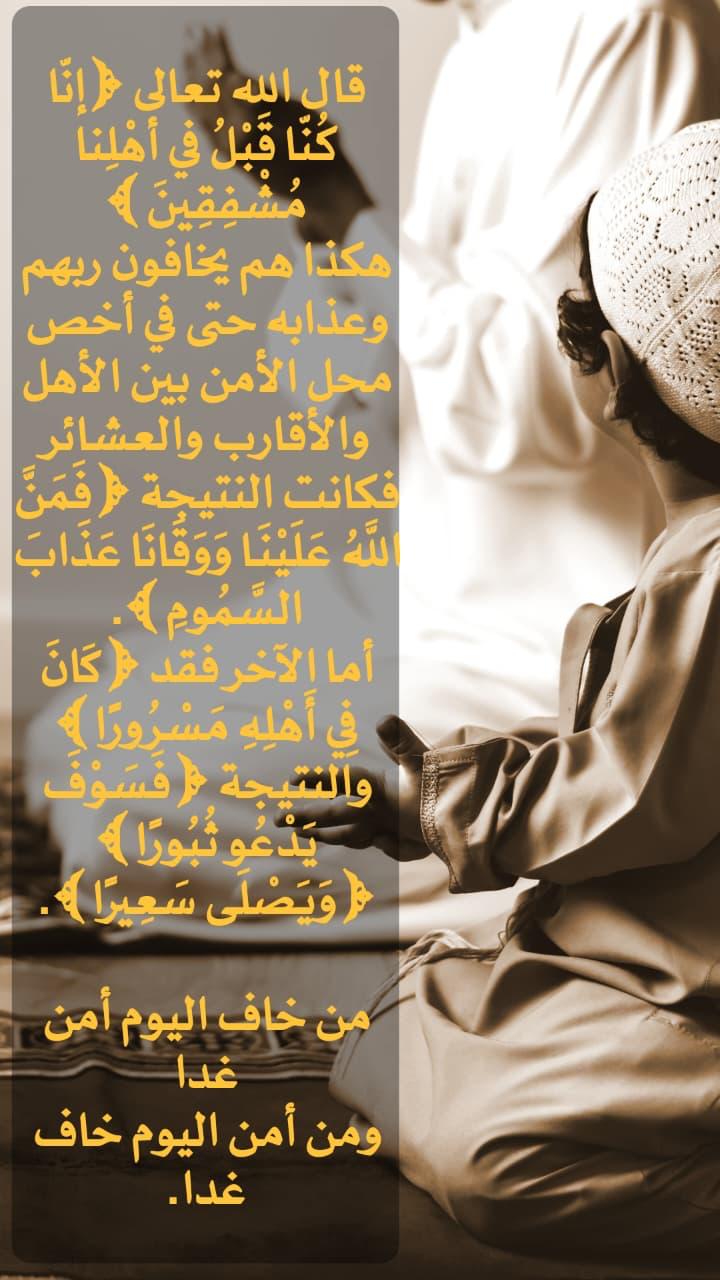 قال الله تعالى ﴿إنّا
كُنّا قَبْلُ في أهْلِنا
مُشْفِقِينَ﴾
هكذا هم يخافون ربهم
وعذابه حتى في أخص
محل الأمن بين الأهل
والأقارب والعشائر
فكانت النتيجة ﴿فَمَنَّ
اللَّهُ عَلَيْنَا وَوَقَانَا عَذَابَ
السَّمُومِ﴾.
أما الآخر فقد ﴿كَانَ
فِي أَهْلِهِ مَسْرُورًا﴾
والنتيجة ﴿فَسَوْفَ
يَدْعُو ثُبُورًا﴾
﴿وَيَصْلَى سَعِيرًا﴾.
من خاف اليوم أمن
غدا
ومن أمن اليوم خاف
غدا.